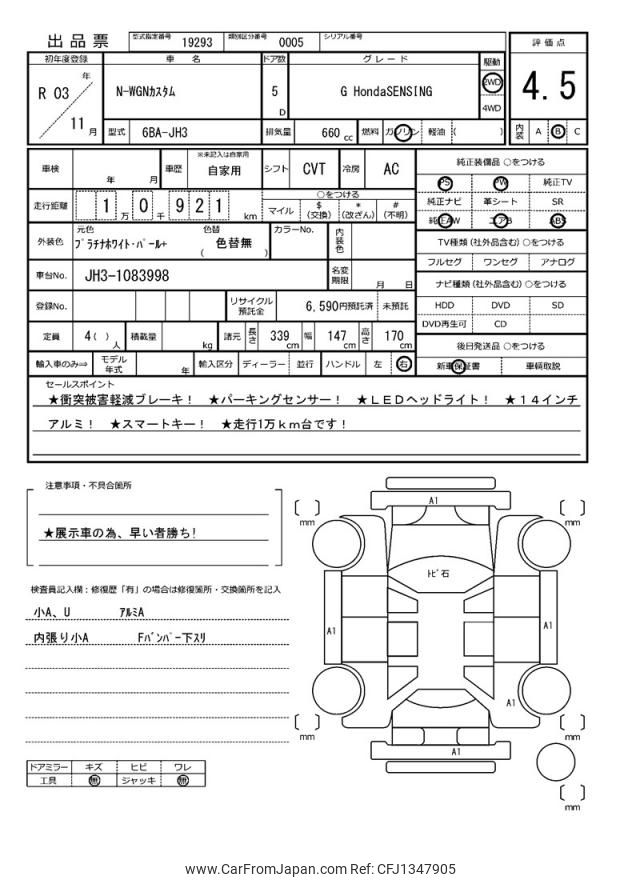 出品票 型式指定番号 19293 類別区分番号 0005 シリアル番号
初年度登録 車名 ドア数 グレード 駆動 評価点
R 03 年 11 月 N-WGNカスタム 5 D G HondaSENSING 2WD 4WD 4.5
型式 6BA-JH3 排気量 660 cc 燃料 ガソリン 軽油 ( ) 内装 A B C
車検 年 月 車歴 ※未記入は自家用 自家用 シフト CVT 冷房 AC
走行距離 1 万 0 千 9 2 1 km ○をつける
マイル $ (交換) * (改ざん) # (不明)
外装色 元色 プラチナホワイト・パール+ 色替 ( 色替無 ) カラーNo. 内装色
車台No. JH3-1083998 名変期限 月 日
登録No. リサイクル預託金 6,590円預託済 未預託
定員 4( ) 人 積載量 kg 諸元 長さ 339 cm 幅 147 cm 高さ 170 cm
輸入車のみ⇒ モデル年式 年 輸入区分 ディーラー 並行 ハンドル 左 右
純正装備品 ○をつける
PS PW 純正TV
純正ナビ 革シート SR
純正AW エアB ABS
TV種類(社外品含む)○をつける
フルセグ ワンセグ アナログ
ナビ種類(社外品含む)○をつける
HDD DVD SD
DVD再生可 CD
後日発送品 ○をつける
新車保証書 車輌取説
セールスポイント
★衝突被害軽減ブレーキ! ★パーキングセンサー! ★LEDヘッドライト! ★14インチ
アルミ! ★スマートキー! ★走行1万km台です!
注意事項・不具合箇所
★展示車の為、早い者勝ち!
検査員記入欄:修復歴「有」の場合は修復箇所・交換箇所を記入
小A、U アルミA
内張り小A Fバンパー下スリ
ドアミラー キズ ヒビ ワレ
工具 無 ジャッキ 無
A1
mm
mm
トビ石
A1
A1
A1
mm
mm
A1
mm
www.CarFromJapan.com Ref: CFJ1347905